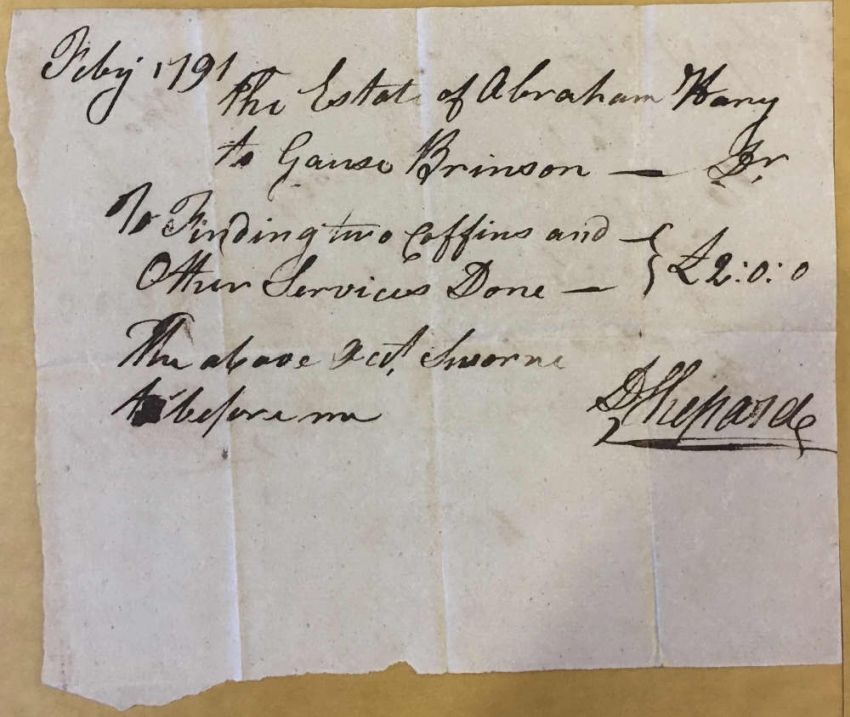 Feby 1791
The Estate of Abraham Hany
to Gause Brinson — Dr
To Finding two Coffins and
Other Services Done — } £2:0:0
The above Act, Sworne
to before me
D Shepard